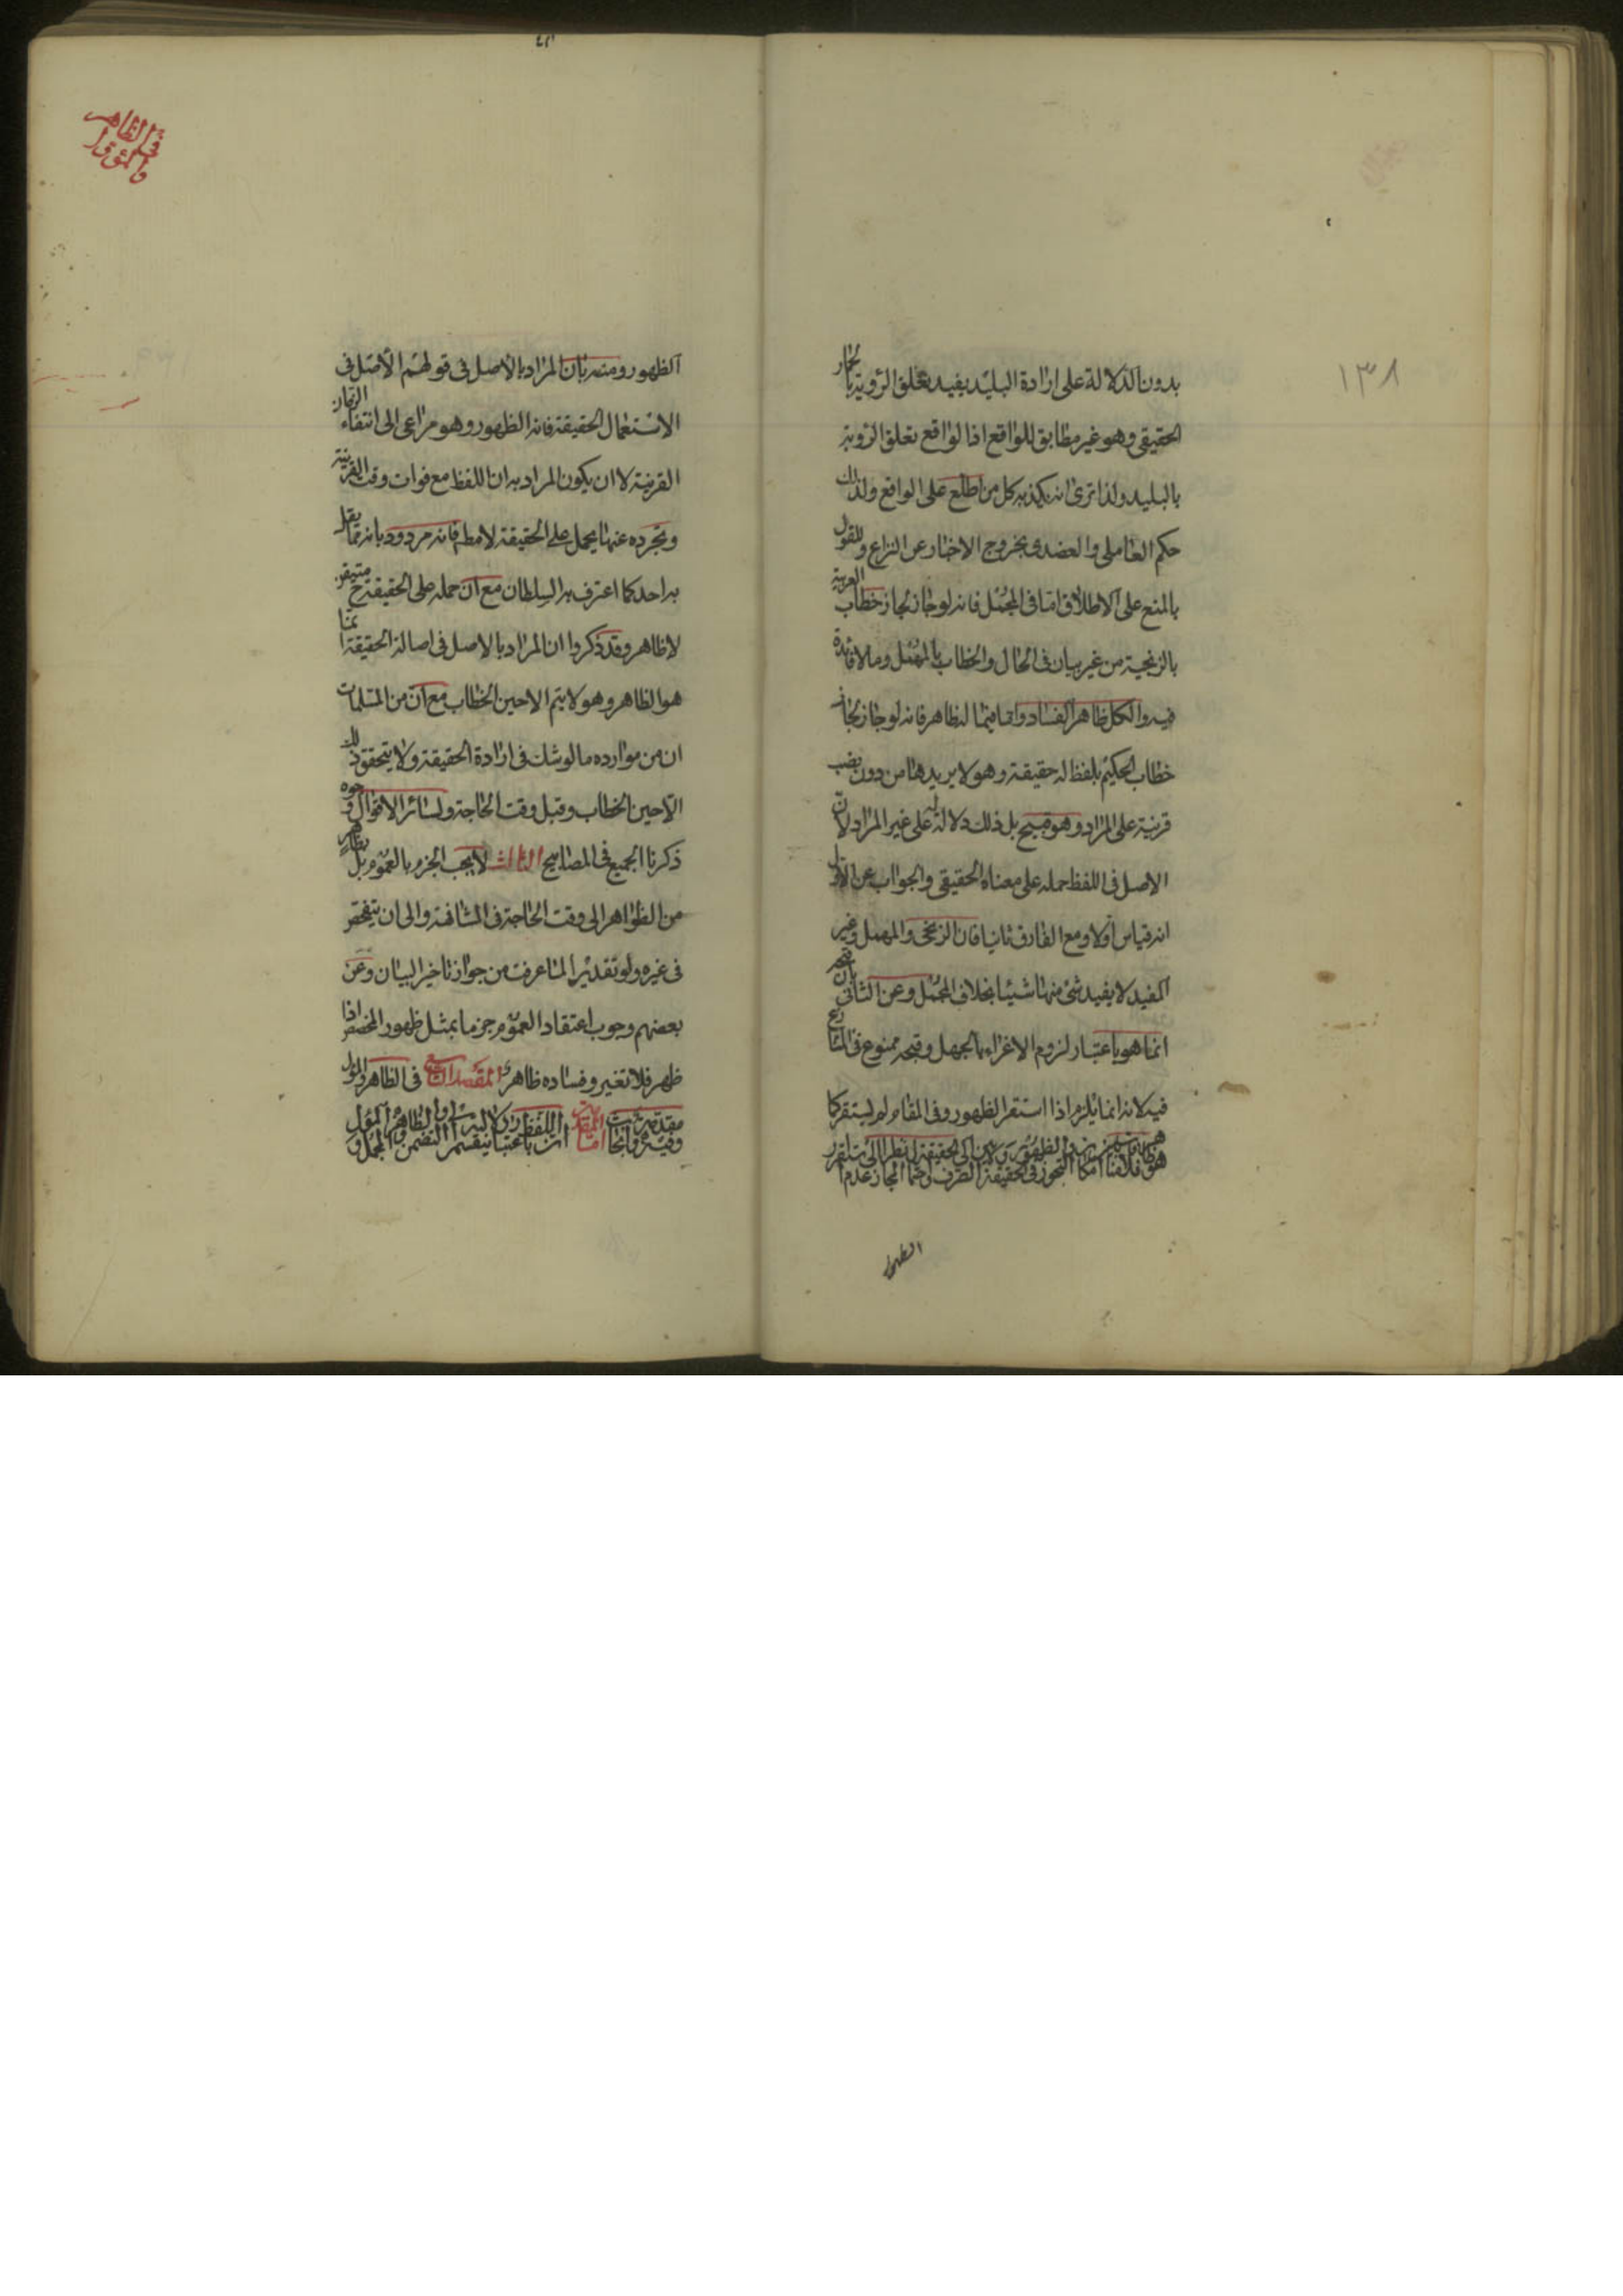 ١٣٨
بدون الدلالة على ارادة البليد يفيد تعلق الرؤية بالحمار
الحقيقي وهو غير مطابق للواقع اذ الواقع تعلق الرؤية
بالبليد ولذا ترى انه يكذبه كل من اطلع على الواقع ولذلك
حكم العاملي والعضدي بخروج الاخبار عن النزاع وللقول
بالمنع على الاطلاق اما في المجمل فانه لو جاز لجاز خطاب العربية
بالزنجية من غير بيان في الحال والخطاب بالمهمل وما لا فائدة
فيه والكل ظاهر الفساد واما فيما له ظاهر فانه لو جاز لجاز
خطاب الحكيم بلفظ له حقيقة وهو لا يريدها من دون نصب
قرينة على المراد وهو قبيح بل ذلك دلالة له على غير المراد لان
الاصل في اللفظ حمله على معناه الحقيقي والجواب عن الاول
انه قياس اولا ومع الفارق ثانيا فان الزنجي والمهمل وغير
المفيد لا يفيد شئ منها شيئا بخلاف المجمل وعن الثاني بان قبحه
انما هو باعتبار لزوم الاغراء بالجهل وقبحه ممنوع في المتنازع
فيه لانه انما يلزم اذا استقر الظهور وفي المقام لم يستقر كما
الظهور
في الظاهر
والمؤول
الظهور ومنه بان المراد بالاصل في قولهم الاصل في
الاستعمال الحقيقة فانه الظهور وهو مراعى الى انتفاء الزمان
القرينة لا ان يكون المراد به ان اللفظ مع فوات وقت القرينة
وتجرده عنها يحمل على الحقيقة لا مطلقا فانه مردود بانه مما لم يقل
به احد كما اعترف به السلطان مع ان حمله على الحقيقة ح متيقن
لا ظاهر وقد ذكروا ان المراد بالاصل في اصالة الحقيقة انما
هو الظاهر وهو لا يتم الا حين الخطاب مع ان من المسلمات
ان من موارده ما لو شك في ارادة الحقيقة ولا يتحقق ذلك
الا حين الخطاب وقبل وقت الحاجة ولسائر الاقوال وجوه
ذكرنا الجميع في المصابيح الثالث لا يجب الجزم بالعموم بل بظاهر
من الظواهر الى وقت الحاجة في المشافهة والى ان يتفحص
في غيره ولو تقديرا لما عرفت من جواز تاخير البيان وعن
بعضهم وجوب اعتقاد العموم جزما بمثل ظهور المخصص اذا
ظهر فلا تغير وفساده ظاهر المقصد التاسع في الظاهر والمؤول